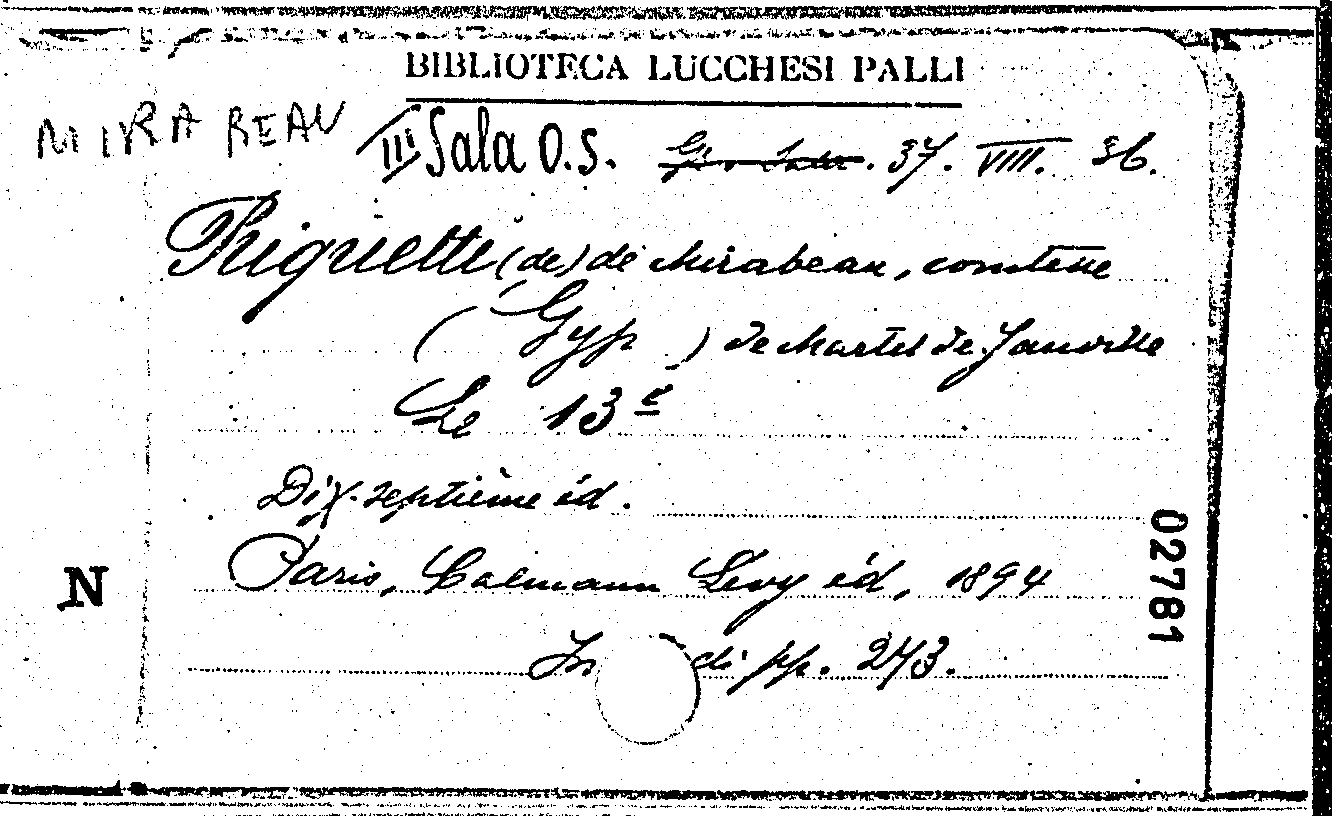 BIBLIOTECA LUCCHESI PALLI
MIRABEAU III Sala O.S. Gr. Sala. 37. VIII. 36.
Riquetti (de) de Mirabeau, comtesse
(Gyp) de Martel de Janville
Le 13e
Dix-septième éd.
Paris, Calmann Levy éd, 1894
N
02781
In di pp. 243.